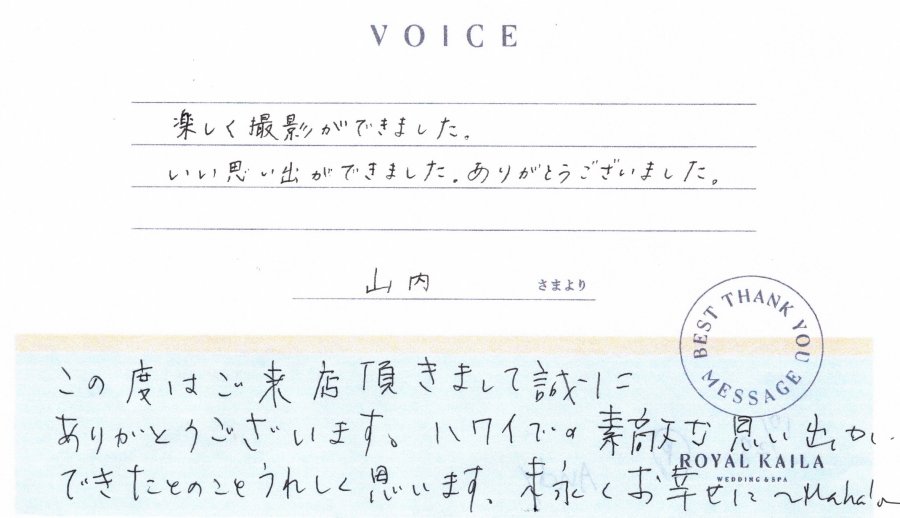 VOICE
楽しく撮影ができました。
いい思い出ができました。ありがとうございました。
山内 さまより
BEST THANK YOU MESSAGE
この度はご来店頂きまして誠に
ありがとうございます。ハワイでの素敵な思い出が
できたとのことうれしく思います。末永くお幸せに~Mahalo
ROYAL KAILA
WEDDING & SPA